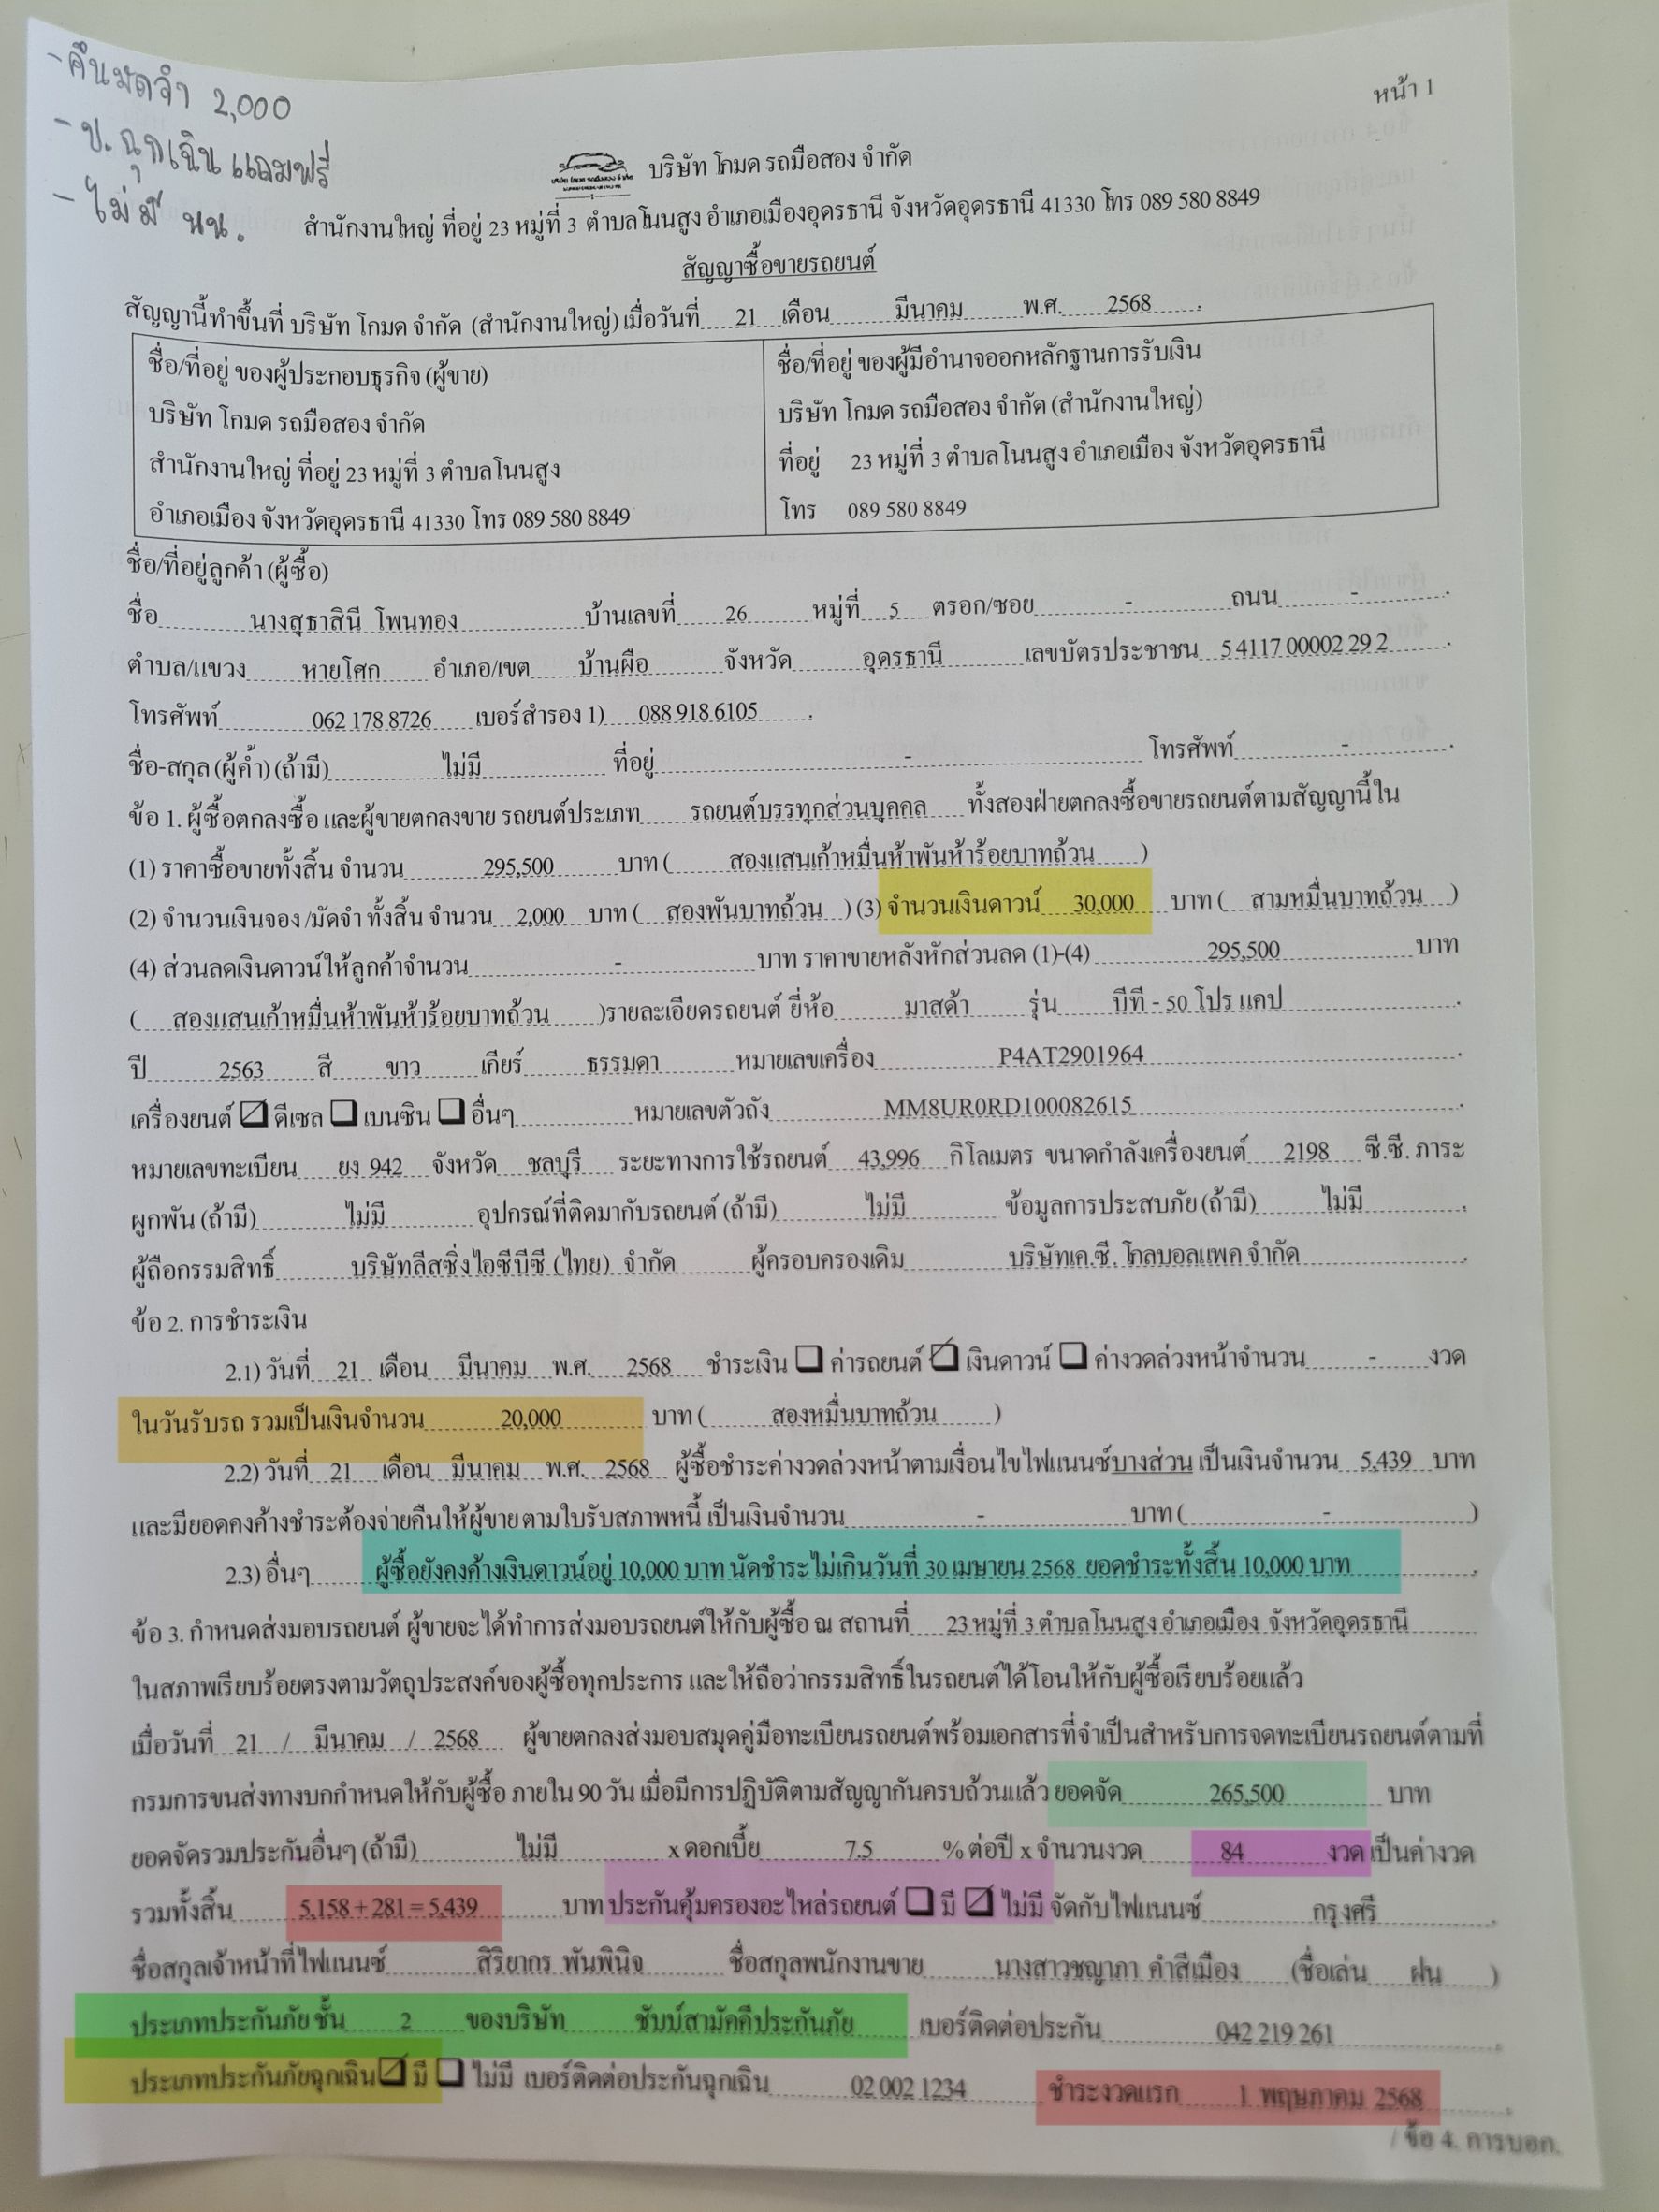 -คืนมัดจำ 2,000
-ป.ฉุกเฉิน แถมฟรี
-ไม่มี นน.
หน้า 1
บริษัท โกมด รถมือสอง จำกัด
สำนักงานใหญ่ ที่อยู่ 23 หมู่ที่ 3 ตำบลโนนสูง อำเภอเมืองอุดรธานี จังหวัดอุดรธานี 41330 โทร 089 580 8849
สัญญาซื้อขายรถยนต์
สัญญานี้ทำขึ้นที่ บริษัท โกมด จำกัด (สำนักงานใหญ่) เมื่อวันที่ 21 เดือน มีนาคม พ.ศ. 2568
ชื่อ/ที่อยู่ ของผู้ประกอบธุรกิจ (ผู้ขาย)
บริษัท โกมด รถมือสอง จำกัด
สำนักงานใหญ่ ที่อยู่ 23 หมู่ที่ 3 ตำบลโนนสูง
อำเภอเมือง จังหวัดอุดรธานี 41330 โทร 089 580 8849
ชื่อ/ที่อยู่ ของผู้มีอำนาจออกหลักฐานการรับเงิน
บริษัท โกมด รถมือสอง จำกัด (สำนักงานใหญ่)
ที่อยู่ 23 หมู่ที่ 3 ตำบลโนนสูง อำเภอเมือง จังหวัดอุดรธานี
โทร 089 580 8849
ชื่อ/ที่อยู่ลูกค้า (ผู้ซื้อ)
ชื่อ นางสุธาสินี โพนทอง บ้านเลขที่ 26 หมู่ที่ 5 ตรอก/ซอย - ถนน -
ตำบล/แขวง หายโศก อำเภอ/เขต บ้านผือ จังหวัด อุดรธานี เลขบัตรประชาชน 5 4117 00002 29 2
โทรศัพท์ 062 178 8726 เบอร์สำรอง 1) 088 918 6105
ชื่อ-สกุล (ผู้ค้ำ) (ถ้ามี) ไม่มี ที่อยู่ - โทรศัพท์ -
ข้อ 1. ผู้ซื้อตกลงซื้อ และผู้ขายตกลงขาย รถยนต์ประเภท รถยนต์บรรทุกส่วนบุคคล ทั้งสองฝ่ายตกลงซื้อขายรถยนต์ตามสัญญานี้ใน
(1) ราคาซื้อขายทั้งสิ้น จำนวน 295,500 บาท ( สองแสนเก้าหมื่นห้าพันห้าร้อยบาทถ้วน )
(2) จำนวนเงินจอง /มัดจำ ทั้งสิ้น จำนวน 2,000 บาท ( สองพันบาทถ้วน ) (3) จำนวนเงินดาวน์ 30,000 บาท ( สามหมื่นบาทถ้วน )
(4) ส่วนลดเงินดาวน์ให้ลูกค้าจำนวน - บาท ราคาขายหลังหักส่วนลด (1)-(4) 295,500 บาท
( สองแสนเก้าหมื่นห้าพันห้าร้อยบาทถ้วน )รายละเอียดรถยนต์ ยี่ห้อ มาสด้า รุ่น บีที - 50 โปร แคป
ปี 2563 สี ขาว เกียร์ ธรรมดา หมายเลขเครื่อง P4AT2901964
เครื่องยนต์ ☑ ดีเซล ☐ เบนซิน ☐ อื่นๆ หมายเลขตัวถัง MM8UR0RD100082615
หมายเลขทะเบียน ยง 942 จังหวัด ชลบุรี ระยะทางการใช้รถยนต์ 43,996 กิโลเมตร ขนาดกำลังเครื่องยนต์ 2198 ซี.ซี. ภาระ
ผูกพัน (ถ้ามี) ไม่มี อุปกรณ์ที่ติดมากับรถยนต์ (ถ้ามี) ไม่มี ข้อมูลการประสบภัย (ถ้ามี) ไม่มี
ผู้ถือกรรมสิทธิ์ บริษัทลีสซิ่งไอซีบีซี (ไทย) จำกัด ผู้ครอบครองเดิม บริษัทเค.ซี. โกลบอลแพค จำกัด
ข้อ 2. การชำระเงิน
2.1) วันที่ 21 เดือน มีนาคม พ.ศ. 2568 ชำระเงิน ☐ ค่ารถยนต์ ☑ เงินดาวน์ ☐ ค่างวดล่วงหน้าจำนวน - งวด
ในวันรับรถ รวมเป็นเงินจำนวน 20,000 บาท ( สองหมื่นบาทถ้วน )
2.2) วันที่ 21 เดือน มีนาคม พ.ศ. 2568 ผู้ซื้อชำระค่างวดล่วงหน้าตามเงื่อนไขไฟแนนซ์บางส่วน เป็นเงินจำนวน 5,439 บาท
และมียอดคงค้างชำระต้องจ่ายคืนให้ผู้ขาย ตามใบรับสภาพหนี้ เป็นเงินจำนวน - บาท ( - )
2.3) อื่นๆ ผู้ซื้อยังคงค้างเงินดาวน์อยู่ 10,000 บาท นัดชำระไม่เกินวันที่ 30 เมษายน 2568 ยอดชำระทั้งสิ้น 10,000 บาท
ข้อ 3. กำหนดส่งมอบรถยนต์ ผู้ขายจะได้ทำการส่งมอบรถยนต์ให้กับผู้ซื้อ ณ สถานที่ 23 หมู่ที่ 3 ตำบลโนนสูง อำเภอเมือง จังหวัดอุดรธานี
ในสภาพเรียบร้อยตรงตามวัตถุประสงค์ของผู้ซื้อทุกประการ และให้ถือว่ากรรมสิทธิ์ในรถยนต์ได้โอนให้กับผู้ซื้อเรียบร้อยแล้ว
เมื่อวันที่ 21 / มีนาคม / 2568 ผู้ขายตกลงส่งมอบสมุดคู่มือทะเบียนรถยนต์พร้อมเอกสารที่จำเป็นสำหรับการจดทะเบียนรถยนต์ตามที่
กรมการขนส่งทางบกกำหนดให้กับผู้ซื้อ ภายใน 90 วัน เมื่อมีการปฏิบัติตามสัญญากันครบถ้วนแล้ว ยอดจัด 265,500 บาท
ยอดจัดรวมประกันอื่นๆ (ถ้ามี) ไม่มี x ดอกเบี้ย 7.5 % ต่อปี x จำนวนงวด 84 งวด เป็นค่างวด
รวมทั้งสิ้น 5,158 + 281 = 5,439 บาท ประกันคุ้มครองอะไหล่รถยนต์ ☐ มี ☑ ไม่มี จัดกับไฟแนนซ์ กรุงศรี
ชื่อสกุลเจ้าหน้าที่ไฟแนนซ์ สิริยากร พันพินิจ ชื่อสกุลพนักงานขาย นางสาวชญาภา คำสีเมือง (ชื่อเล่น ฝน )
ประเภทประกันภัย ชั้น 2 ของบริษัท ชับบ์สามัคคีประกันภัย เบอร์ติดต่อประกัน 042 219 261
ประเภทประกันภัยฉุกเฉิน ☑ มี ☐ ไม่มี เบอร์ติดต่อประกันฉุกเฉิน 02 002 1234 ชำระงวดแรก 1 พฤษภาคม 2568
/ ข้อ 4. การบอก.